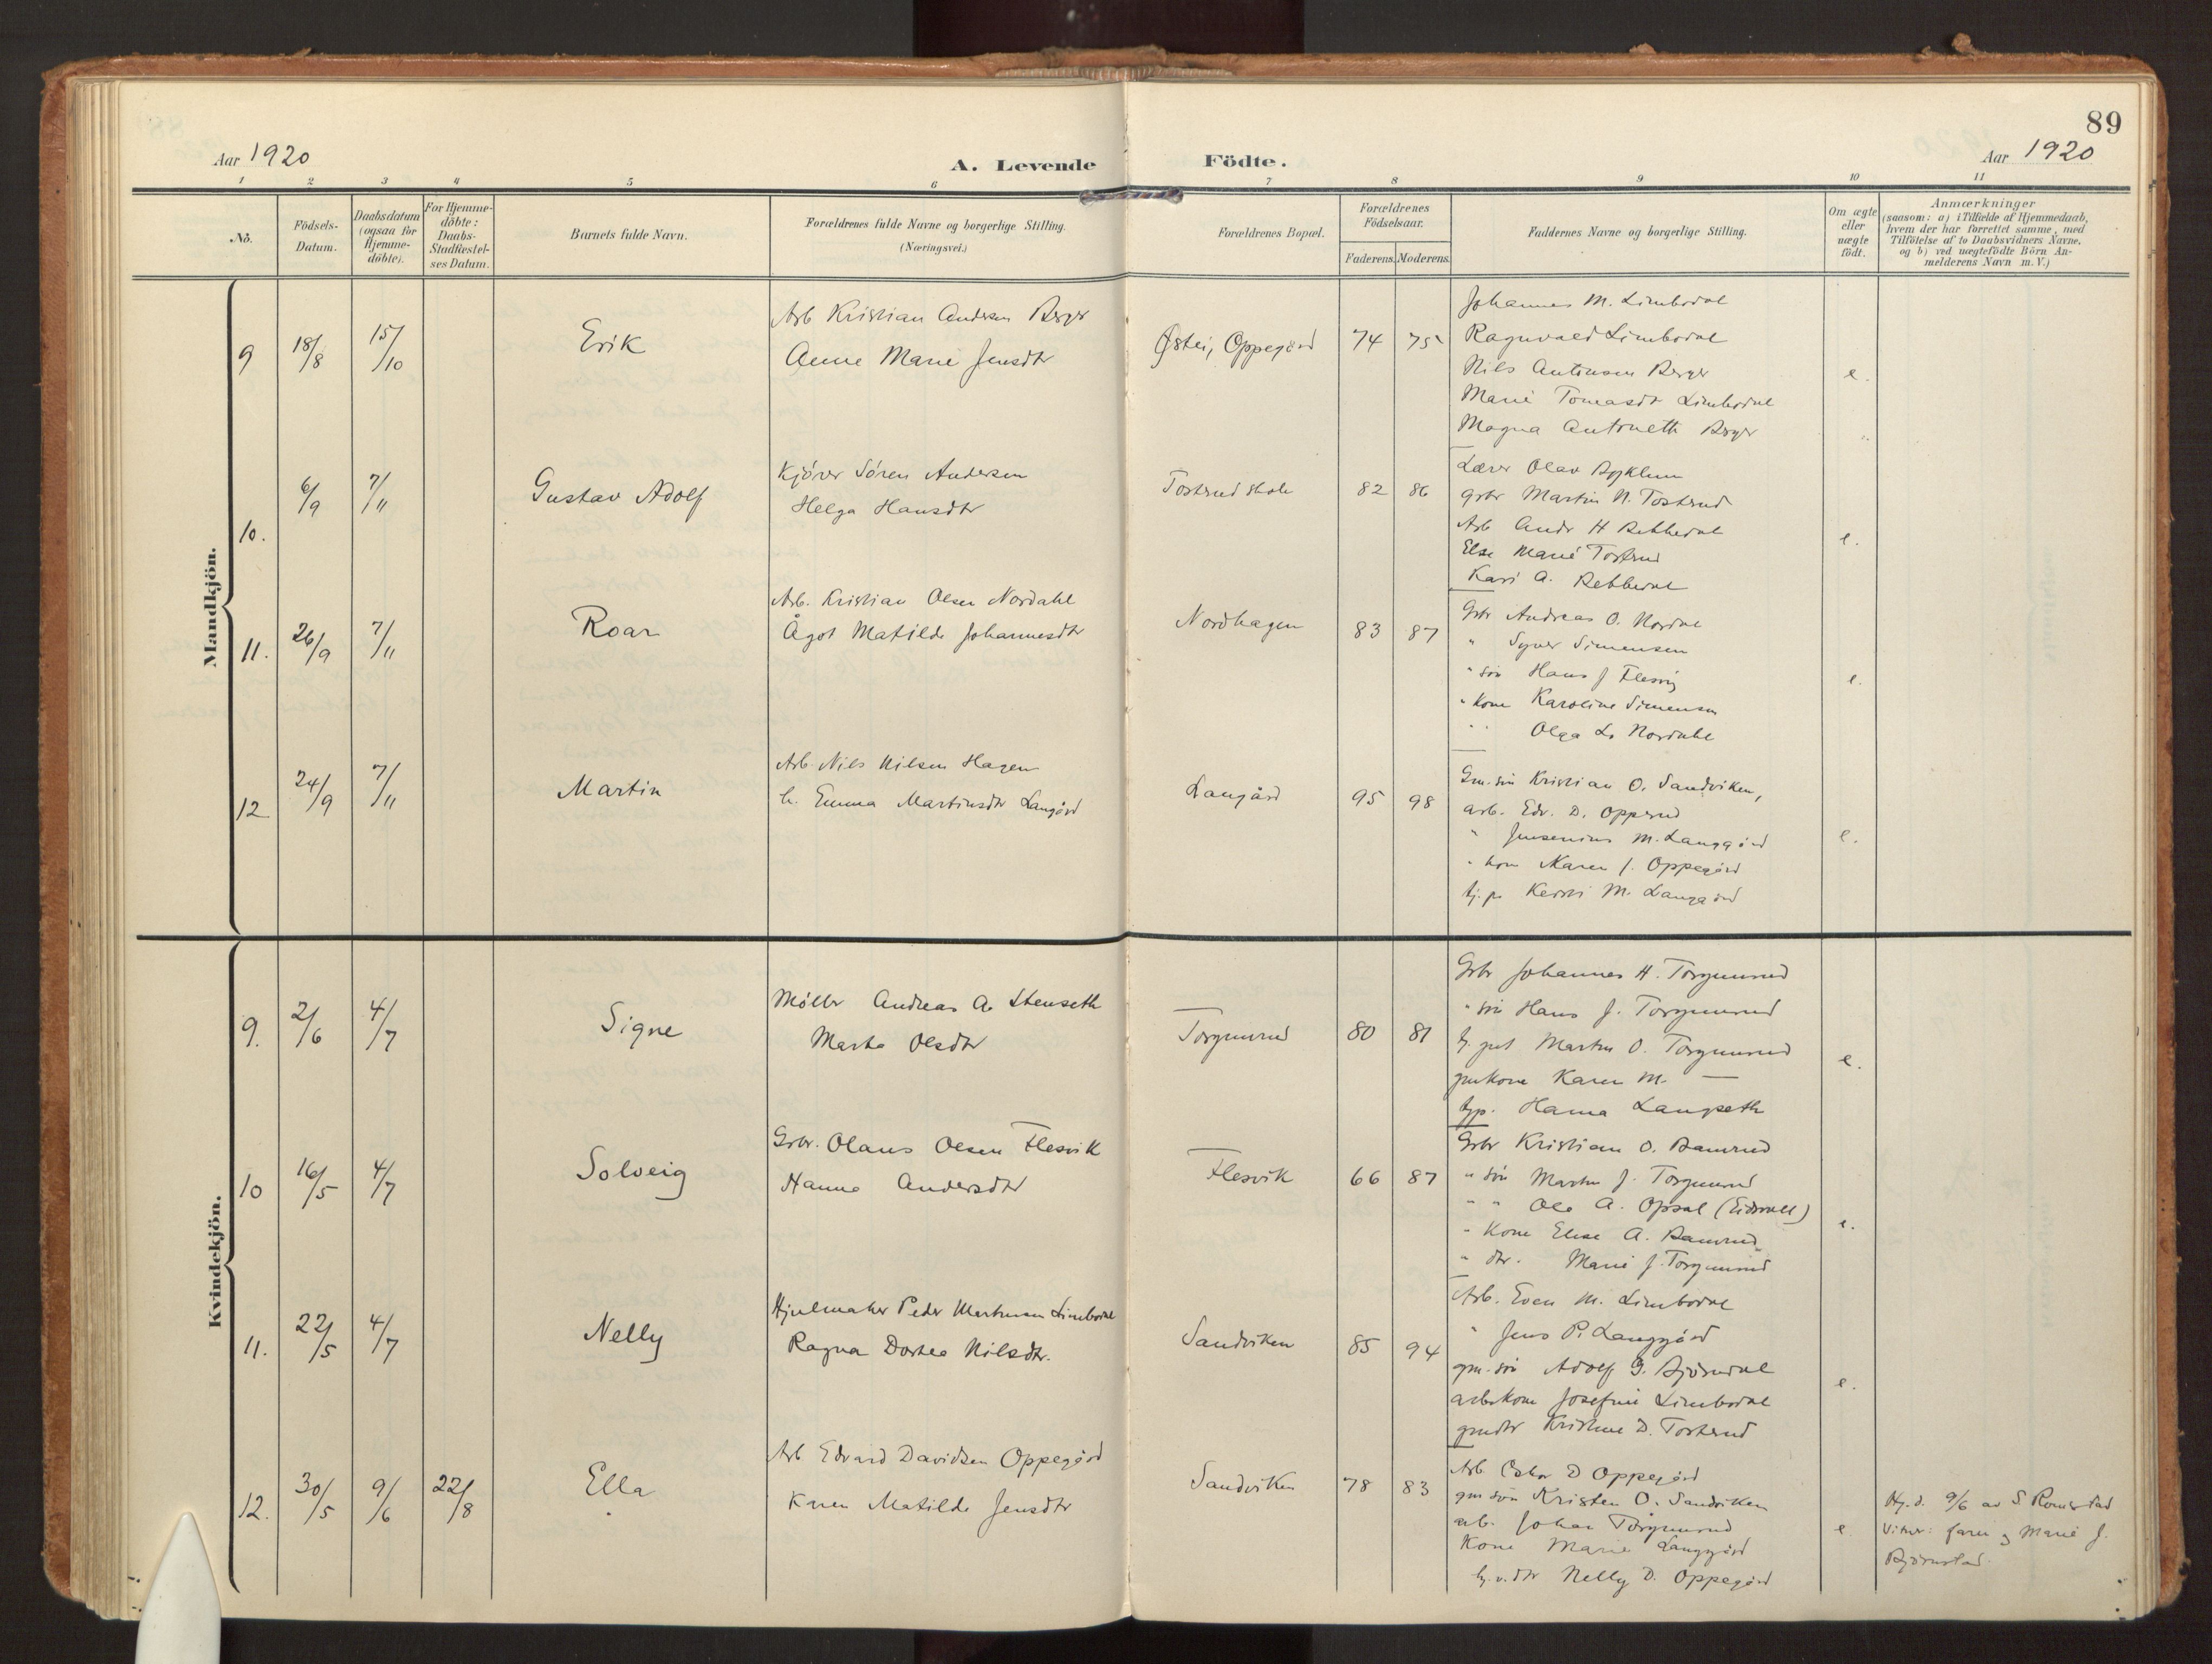 89
Aar 1920
A. Levende Födte.
Aar 1920
1 2 3 4 5 6 7 8 9 10 11
No.
Födsels-
Datum.
Daabsdatum
(ogsaa for
Hjemme-
döbte).
For Hjemme-
döbte:
Daabs-
Stadfæstel-
ses Datum.
Barnets fulde Navn.
Forældrenes fulde Navne og borgerlige Stilling.
(Næringsvei.)
Forældrenes Bopæl.
Forældrenes
Födselsaar.
Faderens. Moderens.
Faddernes Navne og borgerlige Stilling.
Om ægte
eller
uægte
födt.
Anmærkninger
(saasom: a) i Tilfælde af Hjemmedaab,
hvem der har forrettet samme, med
Tilföielse af to Daabsvidners Navne.
og b) ved uægtefödte Börn An-
melderens Navn m. V.)
Mandkjön.
9 18/8 15/10 Erik
Arb Kristian Andersen Berger
Anne Marie Jensdtr
Østei, Oppegård 74 75
Johannes M. Limbodal
Ragnvald Limbodal
Nils Antonsen Berger
Marie Tomasdt Limbodal
Magna Antonette Berger
e.
10. 6/9 7/11 Gustav Adolf
Kjörer Sören Andersen
Helga Hansdtr
Tosterud skole 82 86
Lærer Olav
grbr Martin N. Tosterud
Arb Andr H
Else Marie Tosterud
Kari A.
e.
11. 26/9 7/11 Roar
Arb. Kristian Olsen Nordahl
Ågot Matilde Johannesdtr
Nordhagen 83 87
Gbr Andreas O. Nordal
" Syver Simensen
" sön Hans J Flesvig
" kone Karoline Simensen
" " Olga L. Nordahl
e.
12 24/9 7/11 Martin
Arb. Nils Nilsen Hagen
h. Emma Martinsdtr Langård
Langård 95 98
Gm. sön Kristian O. Sandviken,
arb. Edv. D. Opperud
" Jensenius M. Langgård
" kone Karen J. Oppegård
tj. p. Kersti M. Langgård
e.
Kvindekjön.
9. 2/6 4/7 Signe
Möller Andreas A. Stenseth
Marte Olsdtr
Torgunrud 80 81
Grbr Johannes H. Torgunrud
" sön Hans J. Torgunrud
tj. gut Martin O. Torgunrud
gmkone Karen M. —
tjp. Hanna Langseth
e.
10 16/5 4/7 Solveig
Grbr. Olaus Olsen Flesvik
Hanna Andersdtr
Flesvik 66 87
Grbr Kristian O. Ramrud
" sön Martin J. Torgunrud
" " Ole A. Opsal (Eidsvoll)
" Kone Elise A. Ramrud
" dtr. Marie J. Torgunrud
e.
11. 22/5 4/7 Nelly
Hjulmaker Peder Martinsen Limbodal
Ragna Dortea Nilsdtr.
Sandviken 85 94
Arb. Even M. Limbodal
" Jens P. Langgård
gm. sön Adolf G. Björndal
arbkone Josefine Limbodal
gmdtr Kristine D. Tosterud
e.
12. 30/5 9/6 22/8 Ella
Arb Edvard Davidsen Oppegård
Karen Matilde Jensdtr
Sandviken 78 83
Arb Oskar D Oppegård
gm sön Kristen O. Sandviken
arb. Johan Torgunrud
Kone Marie Langgård
hj. v. dtr Nelly D. Oppegård
e.
Hj. d. 9/6 av S Romstad
Vitner: faren og Marie J.
Björnstad.